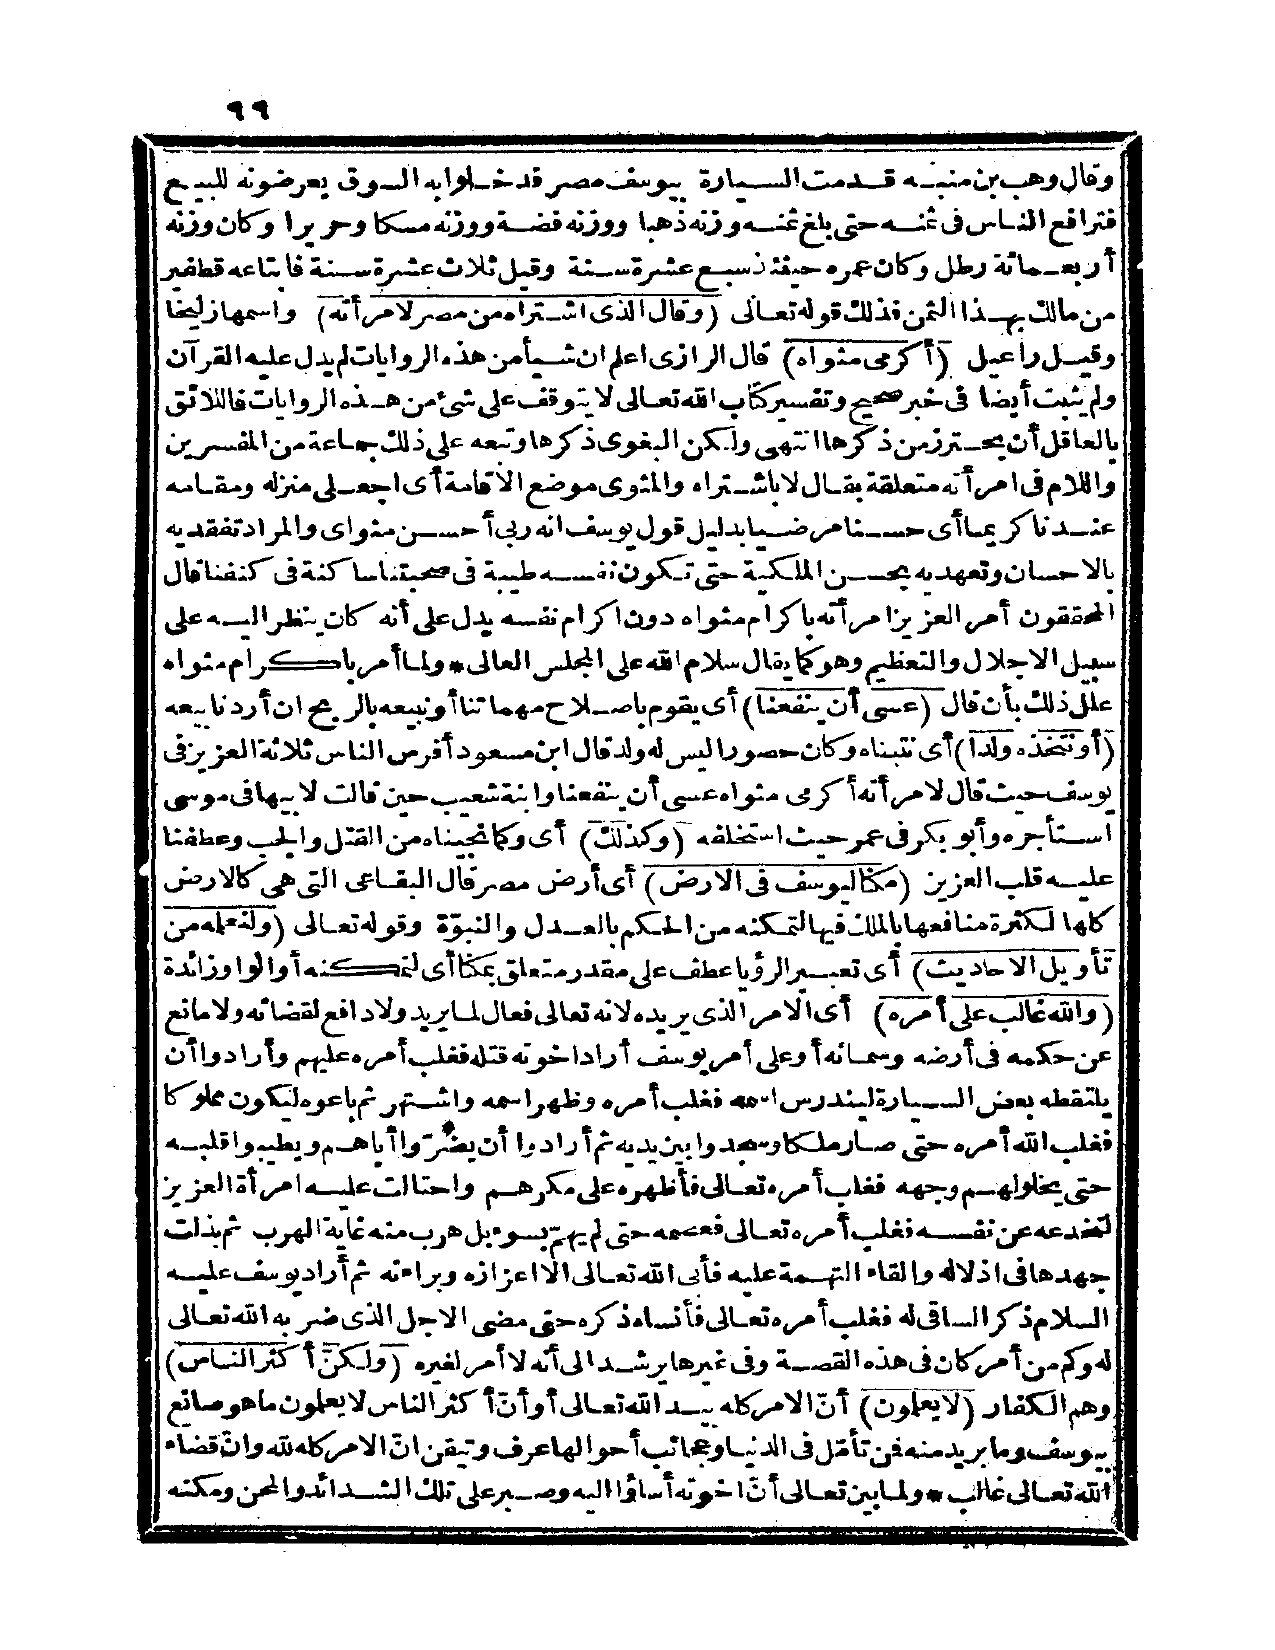 ٩٩
وقال وهب بن منبه قدمت السيارة بيوسف مصر قدخلوا به السوق يعرضونه للبيع
فترافع الناس فى ثمنه حتى بلغ ثمنه وزنه ذهبا ووزنه فضة ووزنه مسكا وحريرا وكان وزنه
أربعمائة رطل وكان عمره حينئذ سبع عشرة سنة وقيل ثلاث عشرة سنة فابتاعه قطفير
من مالك بهذا الثمن فذلك قوله تعالى (وقال الذى اشتراه من مصر لامرأته) واسمها زليخا
وقيل راعيل (أكرمى مثواه) قال الرازى اعلم ان شيأ من هذه الروايات لم يدل عليه القرآن
ولم يثبت أيضا فى خبر صحيح وتفسير كتاب الله تعالى لا يتوقف على شئ من هذه الروايات فاللائق
بالعاقل أن يحترز من ذكرها انتهى ولكن البغوى ذكرها وتبعه على ذلك جماعة من المفسرين
واللام فى امرأته متعلقة بقال لا باشتراه والمثوى موضع الاقامة أى اجعلى منزله ومقامه
عندنا كريما أى حسنا مرضيا بدليل قول يوسف انه ربى أحسن مثواى والمراد تفقديه
بالاحسان وتعهديه بحسن الملكية حتى تكون نفسه طيبة فى صحبتنا ساكنة فى كنفنا قال
المحققون أمر العزيز امرأته باكرام مثواه دون اكرام نفسه يدل على أنه كان ينظر اليه على
سبيل الاجلال والتعظيم وهو كما يقال سلام الله على المجلس العالى * ولما أمر باكرام مثواه
علل ذلك بأن قال (عسى أن ينفعنا) أى يقوم باصلاح مهماتنا أو نبيعه بالربح ان أردنا بيعه
(أو نتخذه ولدا) أى نتبناه وكان حصورا ليس له ولد قال ابن مسعود أفرس الناس ثلاثة العزيز فى
يوسف حيث قال لامرأته أكرمى مثواه عسى أن ينفعنا وابنة شعيب حين قالت لابيها فى موسى
استأجره وأبو بكر فى عمر حيث استخلفه (وكذلك) أى وكما نجيناه من القتل والجب وعطفنا
عليه قلب العزيز (مكنا ليوسف فى الارض) أى أرض مصر قال البقاعى التى هى كالارض
كلها لكثرة منافعها بالملك فيها لتمكنه من الحكم بالعدل والنبوّة وقوله تعالى (ولنعلمه من
تأويل الاحاديث) أى تعبير الرؤيا عطف على مقدر متعلق بمكنا أى لنمكنه أو الواو زائدة
(والله غالب على أمره) أى الامر الذى يريده لانه تعالى فعال لما يريد ولا دافع لقضائه ولا مانع
عن حكمه فى أرضه وسمائه أو على أمر يوسف أراد اخوته قتله فغلب أمره عليهم وأرادوا أن
يلتقطه بعض السيارة ليندرس اسمه فغلب أمره وظهر اسمه واشتهر ثم باعوه ليكون مملوكا
فغلب الله أمره حتى صار ملكا وسجدوا بين يديه ثم أرادوا أن يضرّوا أباهم ويطيبوا قلبه
حتى يخلو لهم وجهه فغلب أمره تعالى فأظهره على مكرهم واحتالت عليه امرأة العزيز
لتخدعه عن نفسه فغلب أمره تعالى فعصمه حتى لم يهمّ بسوء بل هرب منه غاية الهرب ثم بذلت
جهدها فى اذلاله والقاء التهمة عليه فأبى الله تعالى الا اعزازه وبراءته ثم أراد يوسف عليه
السلام ذكر الساقى له فغلب أمره تعالى فأنساه ذكره حتى مضى الاجل الذى ضربه الله تعالى
له وكم من أمر كان فى هذه القصة وفى غيرها يرشد الى أنه لا أمر لغيره (ولكنّ أكثر الناس)
وهم الكفار (لا يعلمون) أنّ الامر كله بيد الله تعالى أو أنّ أكثر الناس لا يعلمون ما هو صانع
بيوسف وما يريد منه فمن تأمّل فى الدنيا وعجائب أحوالها عرف وتيقن انّ الامر كله لله وانّ قضاء
الله تعالى غالب * ولما بين تعالى أنّ اخوته أساؤا اليه وصبر على تلك الشدائد والمحن ومكنه